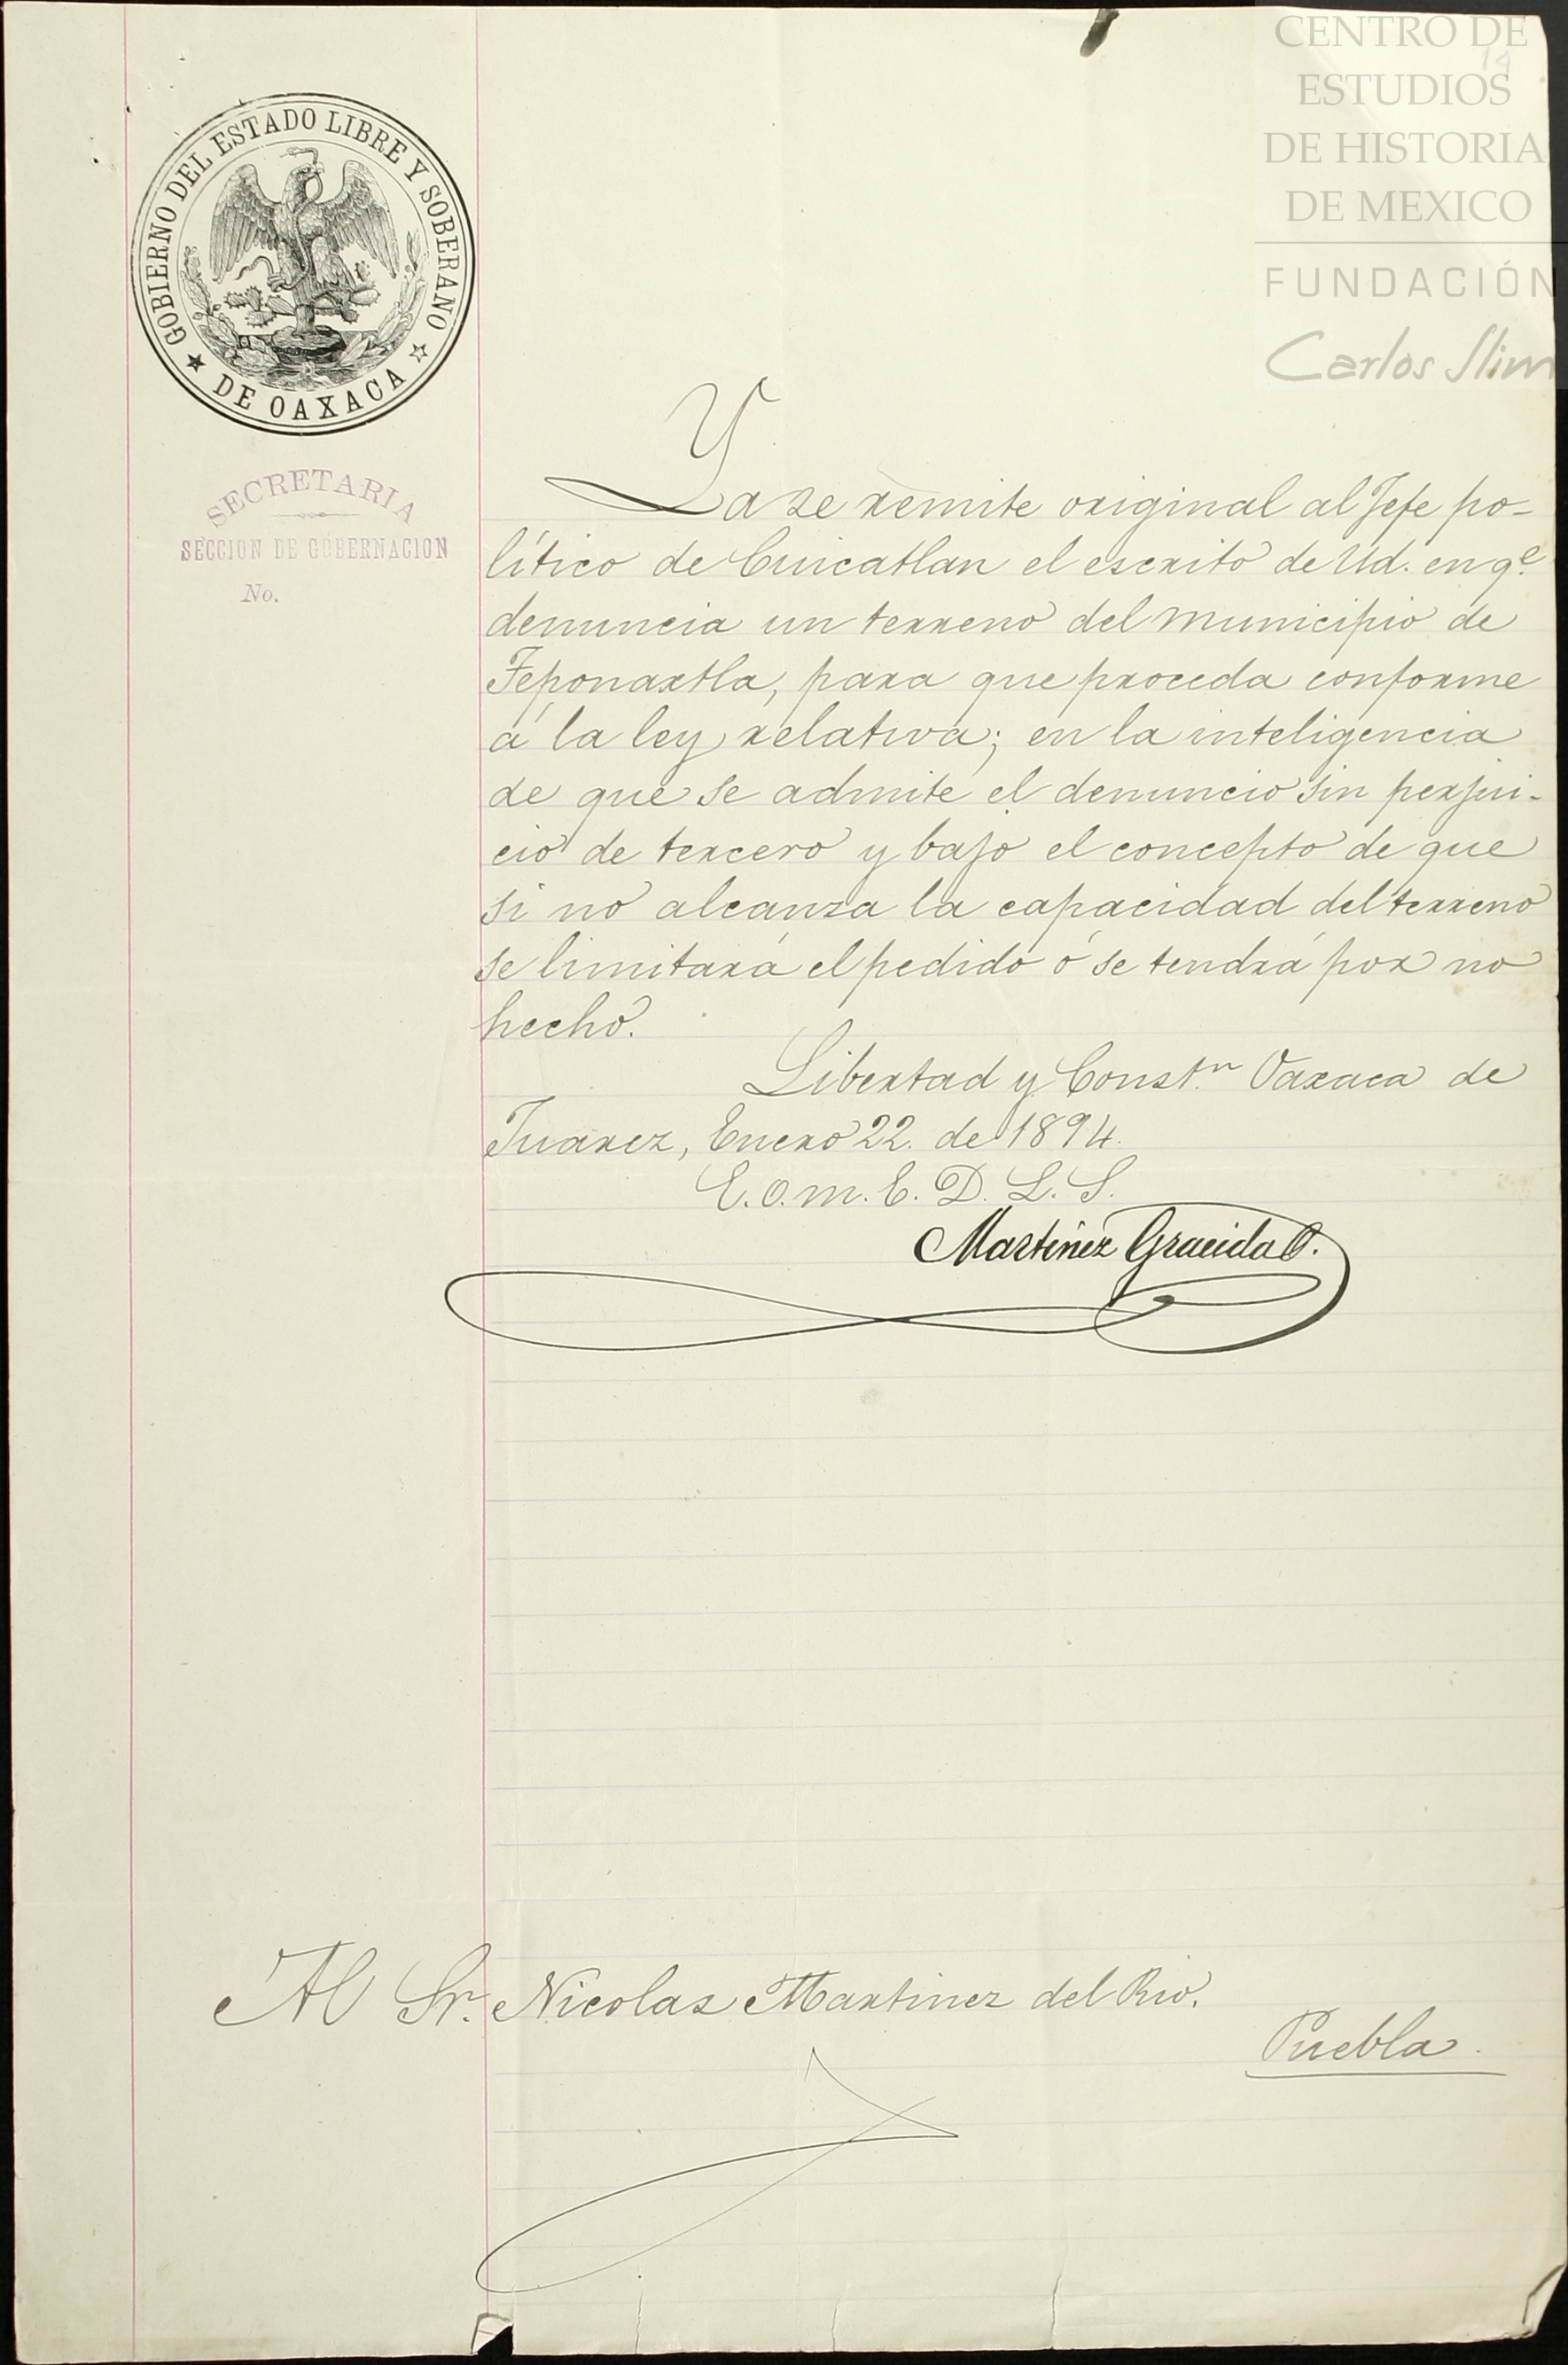 CENTRO DE
ESTUDIOS
DE HISTORIA
DE MEXICO
FUNDACIÓN
Carlos Slim
GOBIERNO DEL ESTADO LIBRE Y SOBERANO
DE OAXACA
SECRETARIA
SECCION DE GOBERNACION
No.
Ya se remite original al Jefe po-
lítico de Cuicatlan el escrito de Ud. en qe.
denuncia un terreno del municipio de
Teponaxtla, para que proceda conforme
á la ley relativa; en la inteligencia
de que se admite el denuncio sin perjui-
cio de tercero y bajo el concepto de que
si no alcanza la capacidad del terreno
se limitará el pedido ó se tendrá por no
hecho.
Libertad y Const.n Oaxaca de
Juarez, Enero 22. de 1894.
E. O. M. E. D. L. S.
Martinez Gracida O.
Al Sr. Nicolas Martinez del Rio.
Puebla.